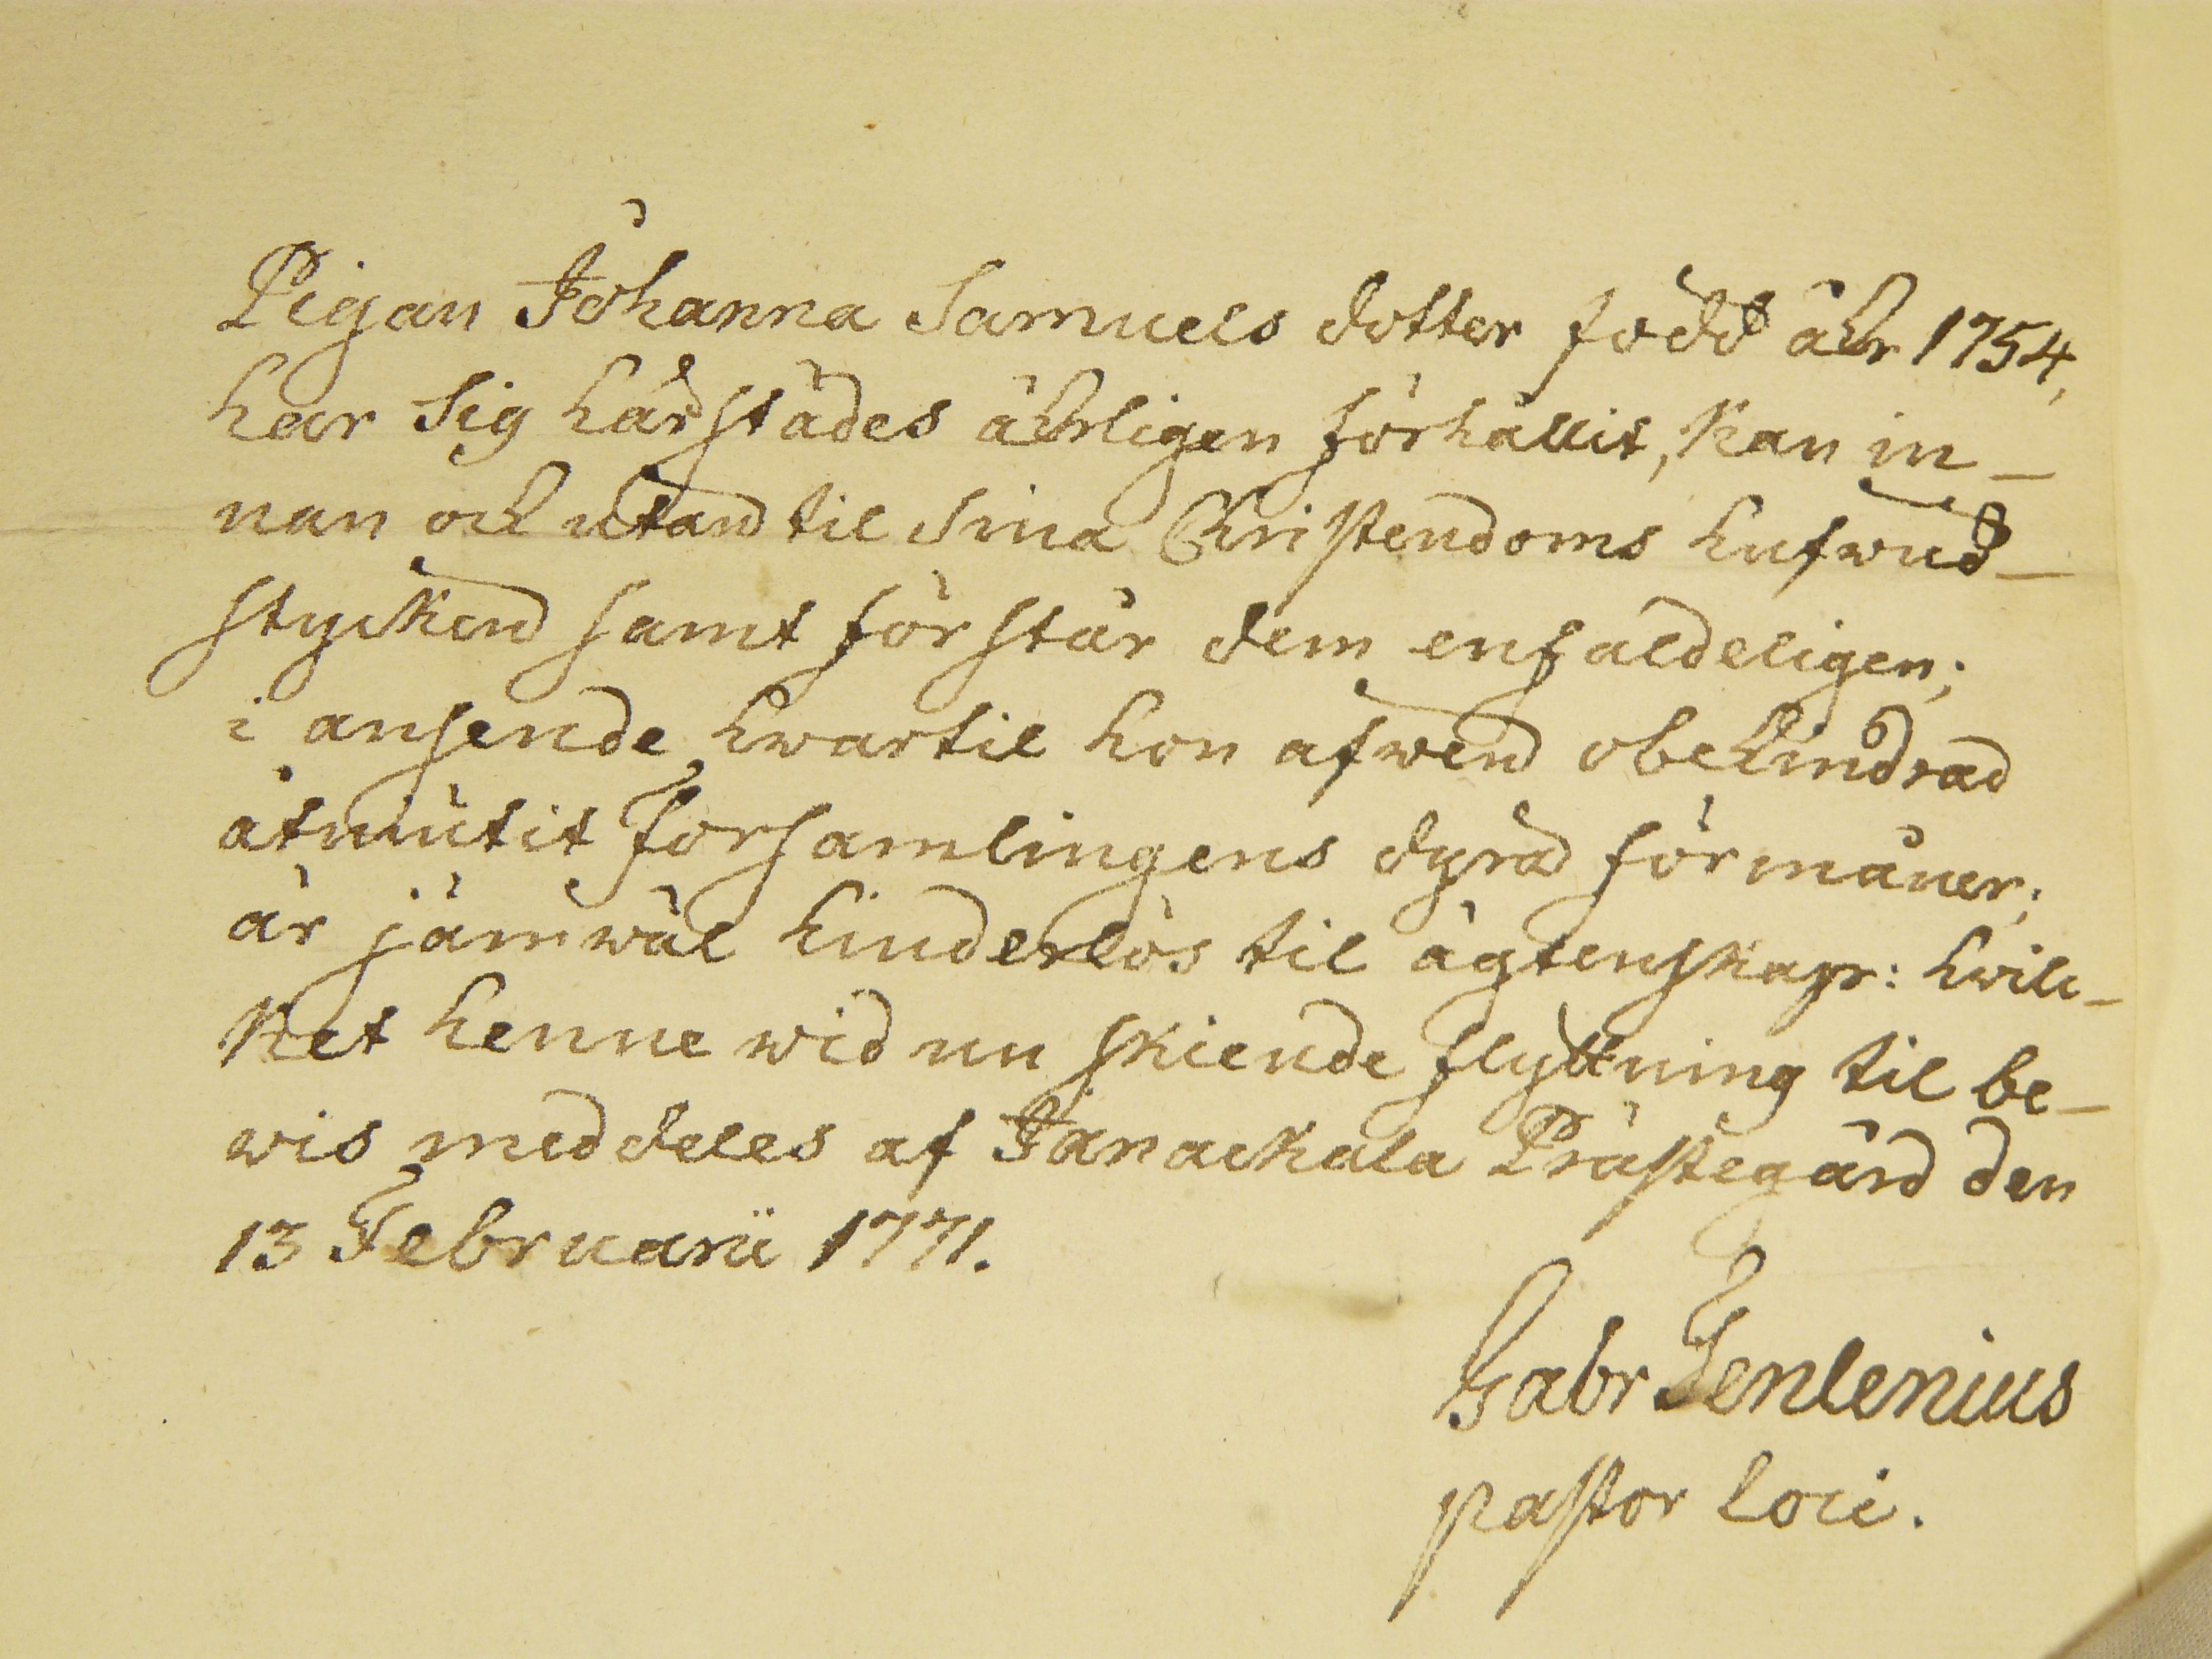 Pigan Johanna Samuels dotter född åhr 1754,
har Sig härstädes ährligen förhållit, kan in-
nan och utan til Sina Christendoms hufwud-
stycken samt förstår dem enfaldeligen;
i anseende hwartil hon afwen obehindrad
åtniutit Forsamlingens dyra förmåner;
är jämwäl hinderlös til ägtenskapr: hwilc-
ket henne wid nu skiende flyttning til be-
wis meddeles af Janackala Prästegård den
13 Februarii 1771.
Gabr
pastor loci.